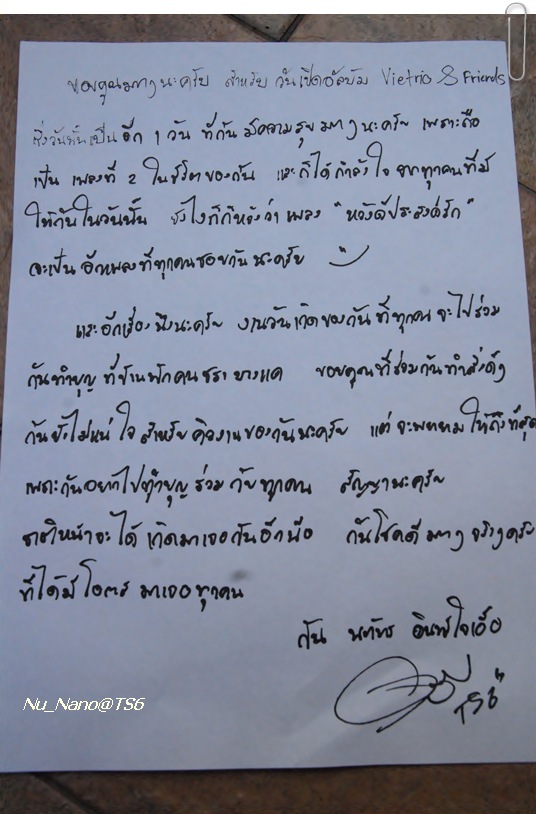 ขอบคุณมากๆนะครับ สำหรับ วันเปิดอัลบัม Vietrio & Friends
ซึ่งวันนั้นเป็น อีก 1 วัน ที่กัน มีความสุข มากๆนะครับ เพราะถือ
เป็น เพลงที่ 2 ในชีวิตของกัน และก็ได้กำลังใจ จากทุกคนที่มี
ให้กันในวันนั้น ยังไงก็ก็หวังว่า เพลง "หวังดีประสงค์รัก"
จะเป็น อีกเพลงที่ทุกคนชอบกัน นะครับ
และอีกเรื่องนึงนะครับ งานวันเกิดของกัน ที่ทุกคน จะไปร่วม
กันทำบุญ ที่บ้านพักคนชรา บางแค ขอบคุณที่ร่วมกันทำสิ่งดีๆ
กันยังไม่แน่ใจ สำหรับคิวงานของกันนะครับ แต่ จะพยายาม ให้ถึงที่สุด
เพราะกันอยากไปทำบุญ ร่วม กับ ทุกคน สัญญานะครับ
ชาติหน้าจะได้ เกิดมาเจอกันอีกนึง กันโชคดี มากๆ จริงๆครับ
ที่ได้มีโอกาส มาเจอทุกคน
กัน นภัทร อินทร์ใจเอื้อ
TS6
Nu_Nano@TS6